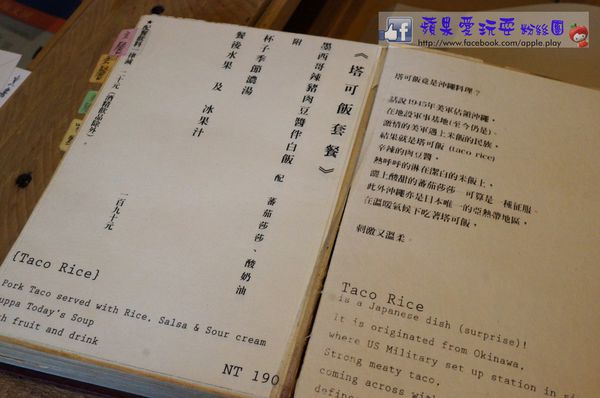 蘋果愛玩耍 粉絲團
http://www.facebook.com/apple.play
《塔可飯套餐》
墨西哥辣豬肉豆醬伴白飯 配 蕃茄莎莎、酸奶油
附
杯子季節濃湯
餐後水果 及 冰果汁
一百九十元
{Taco Rice}
Pork Taco served with Rice, Salsa & Sour cream
uppa Today's Soup
fruit and drink
NT 190
塔可飯竟是沖繩料理？
話說1945年美軍佔領沖繩，
在地設軍事基地(至今仍是)、
激情的美軍遇上米飯的民族，
結果就是塔可飯 (taco rice)
辛辣的肉豆醬，
熱呼呼的淋在潔白的米飯上，
灑上酸甜的蕃茄莎莎 可算是一種征服、
此外沖繩亦是日本唯一的亞熱帶地區，
在溫暖氣候下吃著塔可飯，
刺激又溫柔。
Taco Rice
is a Japanese dish (surprise)!
It is originated from Okinawa,
where US Military set up station in
Strong meaty taco,
coming across with